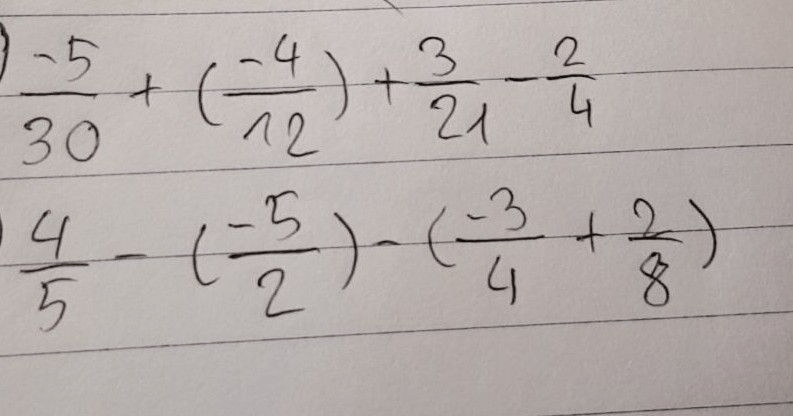 ) -5/30 + (-4/12) + 3/21 - 2/4
) 4/5 - (-5/2) - (-3/4 + 2/8)